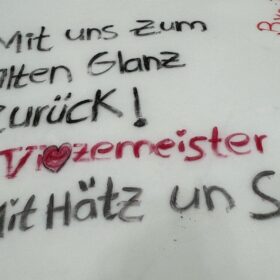 Mit uns zum
alten Glanz
zurück!
Vizemeister
Mit Hätz un S